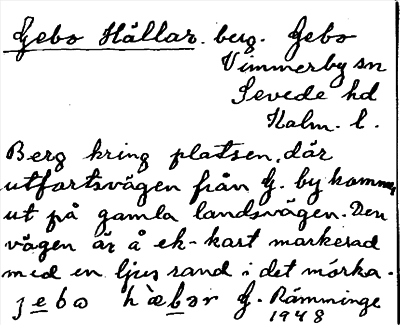 Gebo Hällar. berg. Gebo
Vimmerby sn
Sevede hd
Kalm. l.
Berg kring platsen, där
utfartsvägen från G. by kommer
ut på gamla landsvägen. Den
vägen är å ek-kart markerad
med en ljus rand i det mörka.
G. Rämminge
1948